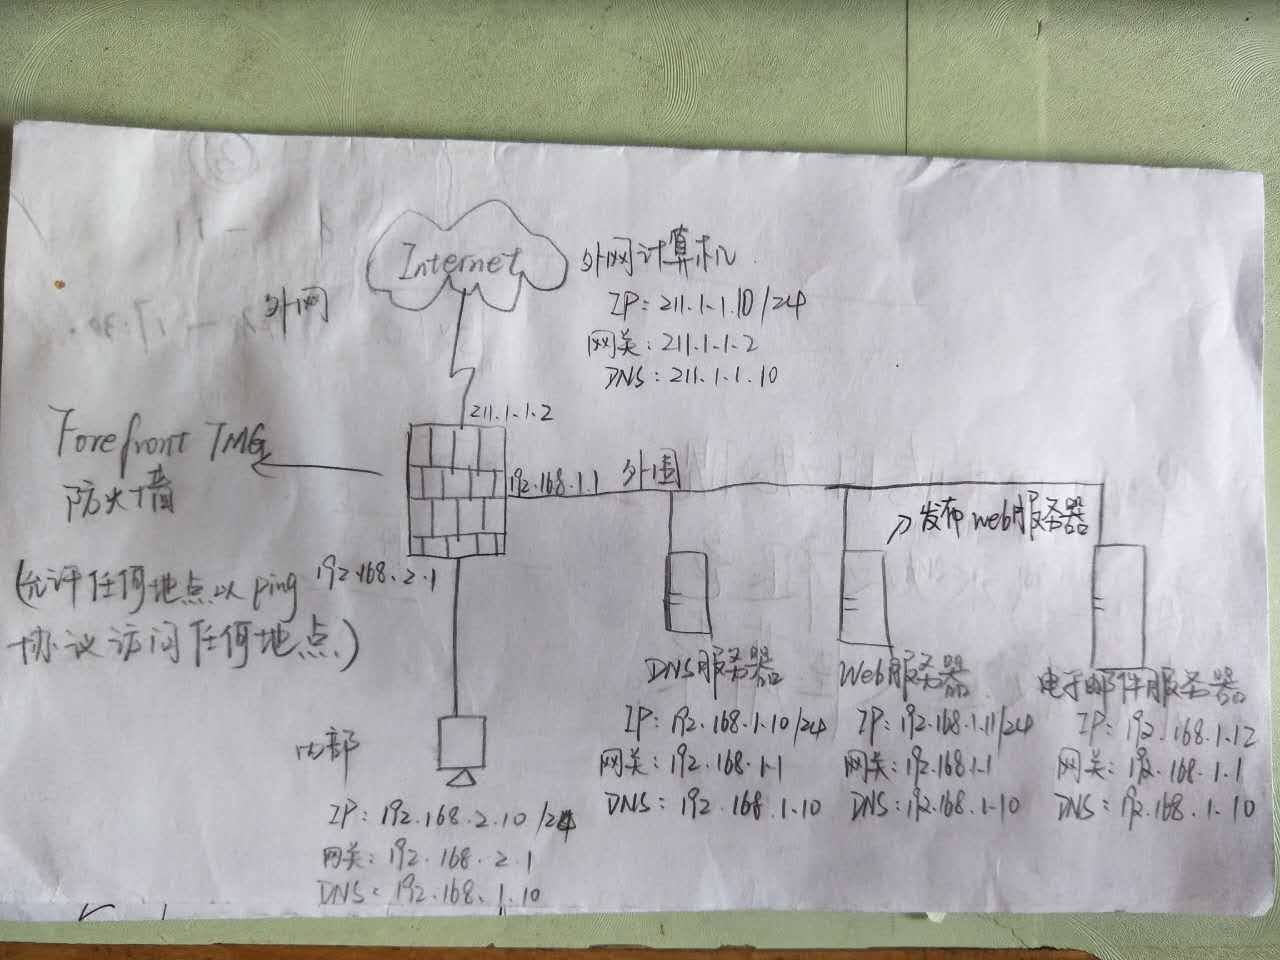 Internet
外网计算机
IP: 211.1.1.10/24
网关: 211.1.1.2
DNS: 211.1.1.10
外网
211.1.1.2
Forefront TMG
防火墙
(允许任何地点以ping
协议访问任何地点)
192.168.1.1
外围
192.168.2.1
发布web服务器
DNS服务器
IP: 192.168.1.10/24
网关: 192.168.1.1
DNS: 192.168.1.10
Web服务器
IP: 192.168.1.11/24
网关: 192.168.1.1
DNS: 192.168.1.10
电子邮件服务器
IP: 192.168.1.12
网关: 192.168.1.1
DNS: 192.168.1.10
内部
IP: 192.168.2.10/24
网关: 192.168.2.1
DNS: 192.168.1.10